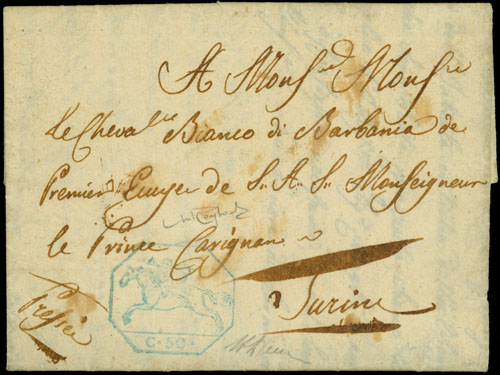 A Monsr Monsr
le Chevallie Bianco di Barbania de
Premier Ecuyer de S. A. S. Monseigneur
le Prince Carignan
Turin
Pressée
C. 50